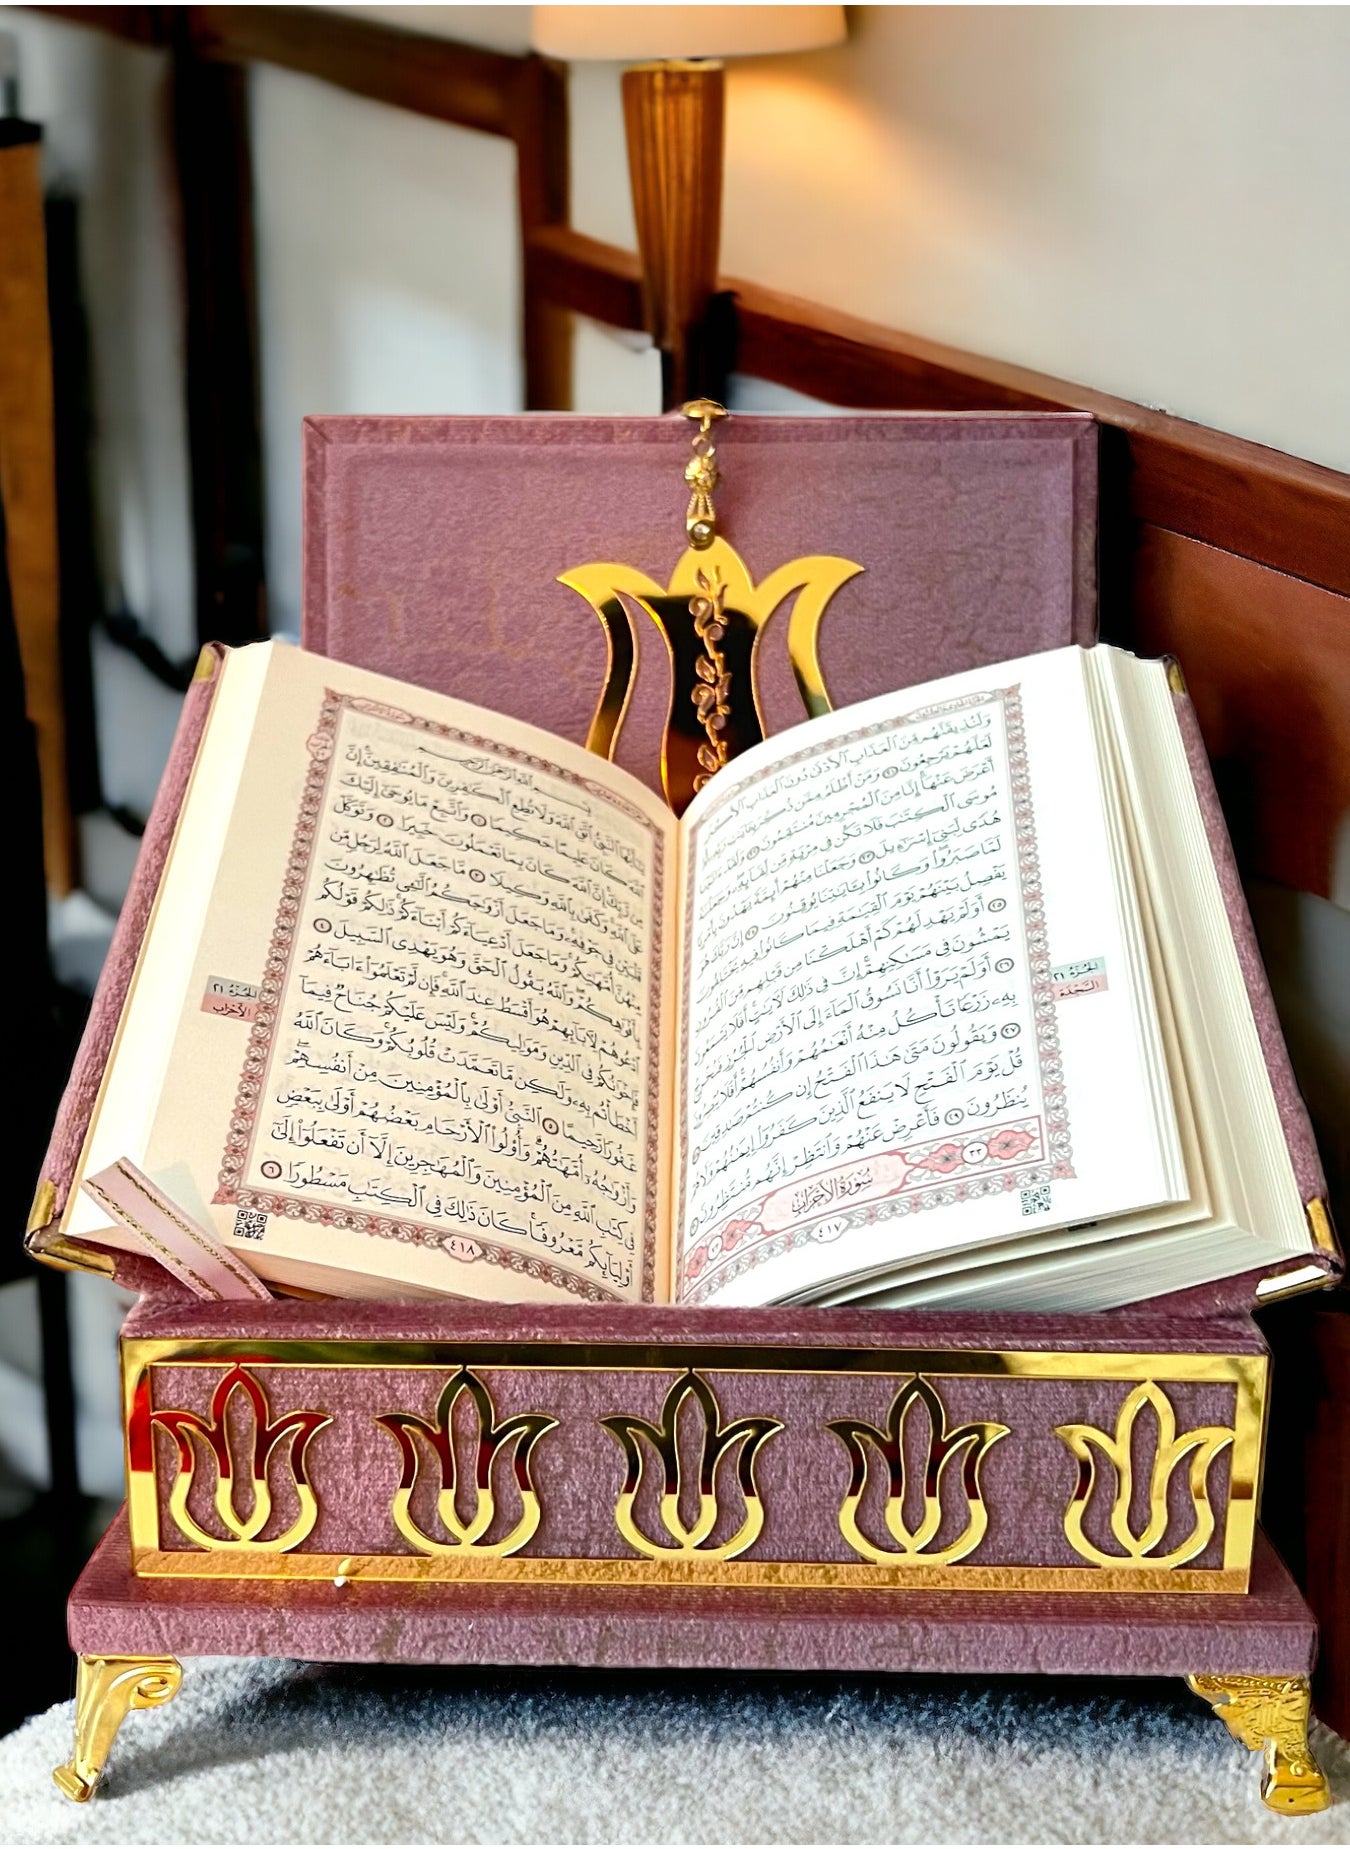 وَلَنُذِيقَنَّهُم مِّنَ ٱلْعَذَابِ ٱلْأَدْنَىٰ دُونَ ٱلْعَذَابِ ٱلْأَكْبَرِ
لَعَلَّهُمْ يَرْجِعُونَ ٢١ وَمَنْ أَظْلَمُ مِمَّن ذُكِّرَ بِـَٔايَٰتِ رَبِّهِۦ ثُمَّ
أَعْرَضَ عَنْهَآ إِنَّا مِنَ ٱلْمُجْرِمِينَ مُنتَقِمُونَ ٢٢ وَلَقَدْ ءَاتَيْنَا
مُوسَى ٱلْكِتَٰبَ فَلَا تَكُن فِى مِرْيَةٍ مِّن لِّقَآئِهِۦ وَجَعَلْنَٰهُ
هُدًى لِّبَنِىٓ إِسْرَٰٓءِيلَ ٢٣ وَجَعَلْنَا مِنْهُمْ أَئِمَّةً يَهْدُونَ بِأَمْرِنَا
لَمَّا صَبَرُوا۟ وَكَانُوا۟ بِـَٔايَٰتِنَا يُوقِنُونَ ٢٤ إِنَّ رَبَّكَ هُوَ
يَفْصِلُ بَيْنَهُمْ يَوْمَ ٱلْقِيَٰمَةِ فِيمَا كَانُوا۟ فِيهِ يَخْتَلِفُونَ
٢٥ أَوَلَمْ يَهْدِ لَهُمْ كَمْ أَهْلَكْنَا مِن قَبْلِهِم مِّنَ ٱلْقُرُونِ
يَمْشُونَ فِى مَسَٰكِنِهِمْ إِنَّ فِى ذَٰلِكَ لَـَٔايَٰتٍ أَفَلَا يَسْمَعُونَ
٢٦ أَوَلَمْ يَرَوْا۟ أَنَّا نَسُوقُ ٱلْمَآءَ إِلَى ٱلْأَرْضِ ٱلْجُرُزِ فَنُخْرِجُ
بِهِۦ زَرْعًا تَأْكُلُ مِنْهُ أَنْعَٰمُهُمْ وَأَنفُسُهُمْ أَفَلَا يُبْصِرُونَ
٢٧ وَيَقُولُونَ مَتَىٰ هَٰذَا ٱلْفَتْحُ إِن كُنتُمْ صَٰدِقِينَ ٢٨
قُلْ يَوْمَ ٱلْفَتْحِ لَا يَنفَعُ ٱلَّذِينَ كَفَرُوٓا۟ إِيمَٰنُهُمْ وَلَا هُمْ
يُنظَرُونَ ٢٩ فَأَعْرِضْ عَنْهُمْ وَٱنتَظِرْ إِنَّهُم مُّنتَظِرُونَ ٣٠
٣٣ سُورَةُ الأَحْزَابِ
٤١٧
الجُزْءُ ٢١
السَّجْدَة
بِسْمِ ٱللَّهِ ٱلرَّحْمَٰنِ ٱلرَّحِيمِ
يَٰٓأَيُّهَا ٱلنَّبِىُّ ٱتَّقِ ٱللَّهَ وَلَا تُطِعِ ٱلْكَٰفِرِينَ وَٱلْمُنَٰفِقِينَ إِنَّ
ٱللَّهَ كَانَ عَلِيمًا حَكِيمًا ١ وَٱتَّبِعْ مَا يُوحَىٰٓ إِلَيْكَ
مِن رَّبِّكَ إِنَّ ٱللَّهَ كَانَ بِمَا تَعْمَلُونَ خَبِيرًا ٢ وَتَوَكَّلْ
عَلَى ٱللَّهِ وَكَفَىٰ بِٱللَّهِ وَكِيلًا ٣ مَّا جَعَلَ ٱللَّهُ لِرَجُلٍ مِّن
قَلْبَيْنِ فِى جَوْفِهِۦ وَمَا جَعَلَ أَزْوَٰجَكُمُ ٱلَّٰٓـِٔى تُظَٰهِرُونَ
مِنْهُنَّ أُمَّهَٰتِكُمْ وَمَا جَعَلَ أَدْعِيَآءَكُمْ أَبْنَآءَكُمْ ذَٰلِكُمْ قَوْلُكُم
بِأَفْوَٰهِكُمْ وَٱللَّهُ يَقُولُ ٱلْحَقَّ وَهُوَ يَهْدِى ٱلسَّبِيلَ ٤
ٱدْعُوهُمْ لِءَابَآئِهِمْ هُوَ أَقْسَطُ عِندَ ٱللَّهِ فَإِن لَّمْ تَعْلَمُوٓا۟ ءَابَآءَهُمْ
فَإِخْوَٰنُكُمْ فِى ٱلدِّينِ وَمَوَٰلِيكُمْ وَلَيْسَ عَلَيْكُمْ جُنَاحٌ فِيمَآ
أَخْطَأْتُم بِهِۦ وَلَٰكِن مَّا تَعَمَّدَتْ قُلُوبُكُمْ وَكَانَ ٱللَّهُ
غَفُورًا رَّحِيمًا ٥ ٱلنَّبِىُّ أَوْلَىٰ بِٱلْمُؤْمِنِينَ مِنْ أَنفُسِهِمْ
وَأَزْوَٰجُهُۥٓ أُمَّهَٰتُهُمْ وَأُو۟لُوا۟ ٱلْأَرْحَامِ بَعْضُهُمْ أَوْلَىٰ بِبَعْضٍ
فِى كِتَٰبِ ٱللَّهِ مِنَ ٱلْمُؤْمِنِينَ وَٱلْمُهَٰجِرِينَ إِلَّآ أَن تَفْعَلُوٓا۟ إِلَىٰٓ
أَوْلِيَآئِكُم مَّعْرُوفًا كَانَ ذَٰلِكَ فِى ٱلْكِتَٰبِ مَسْطُورًا ٦
٤١٨
الجُزْءُ ٢١
الأَحْزَاب